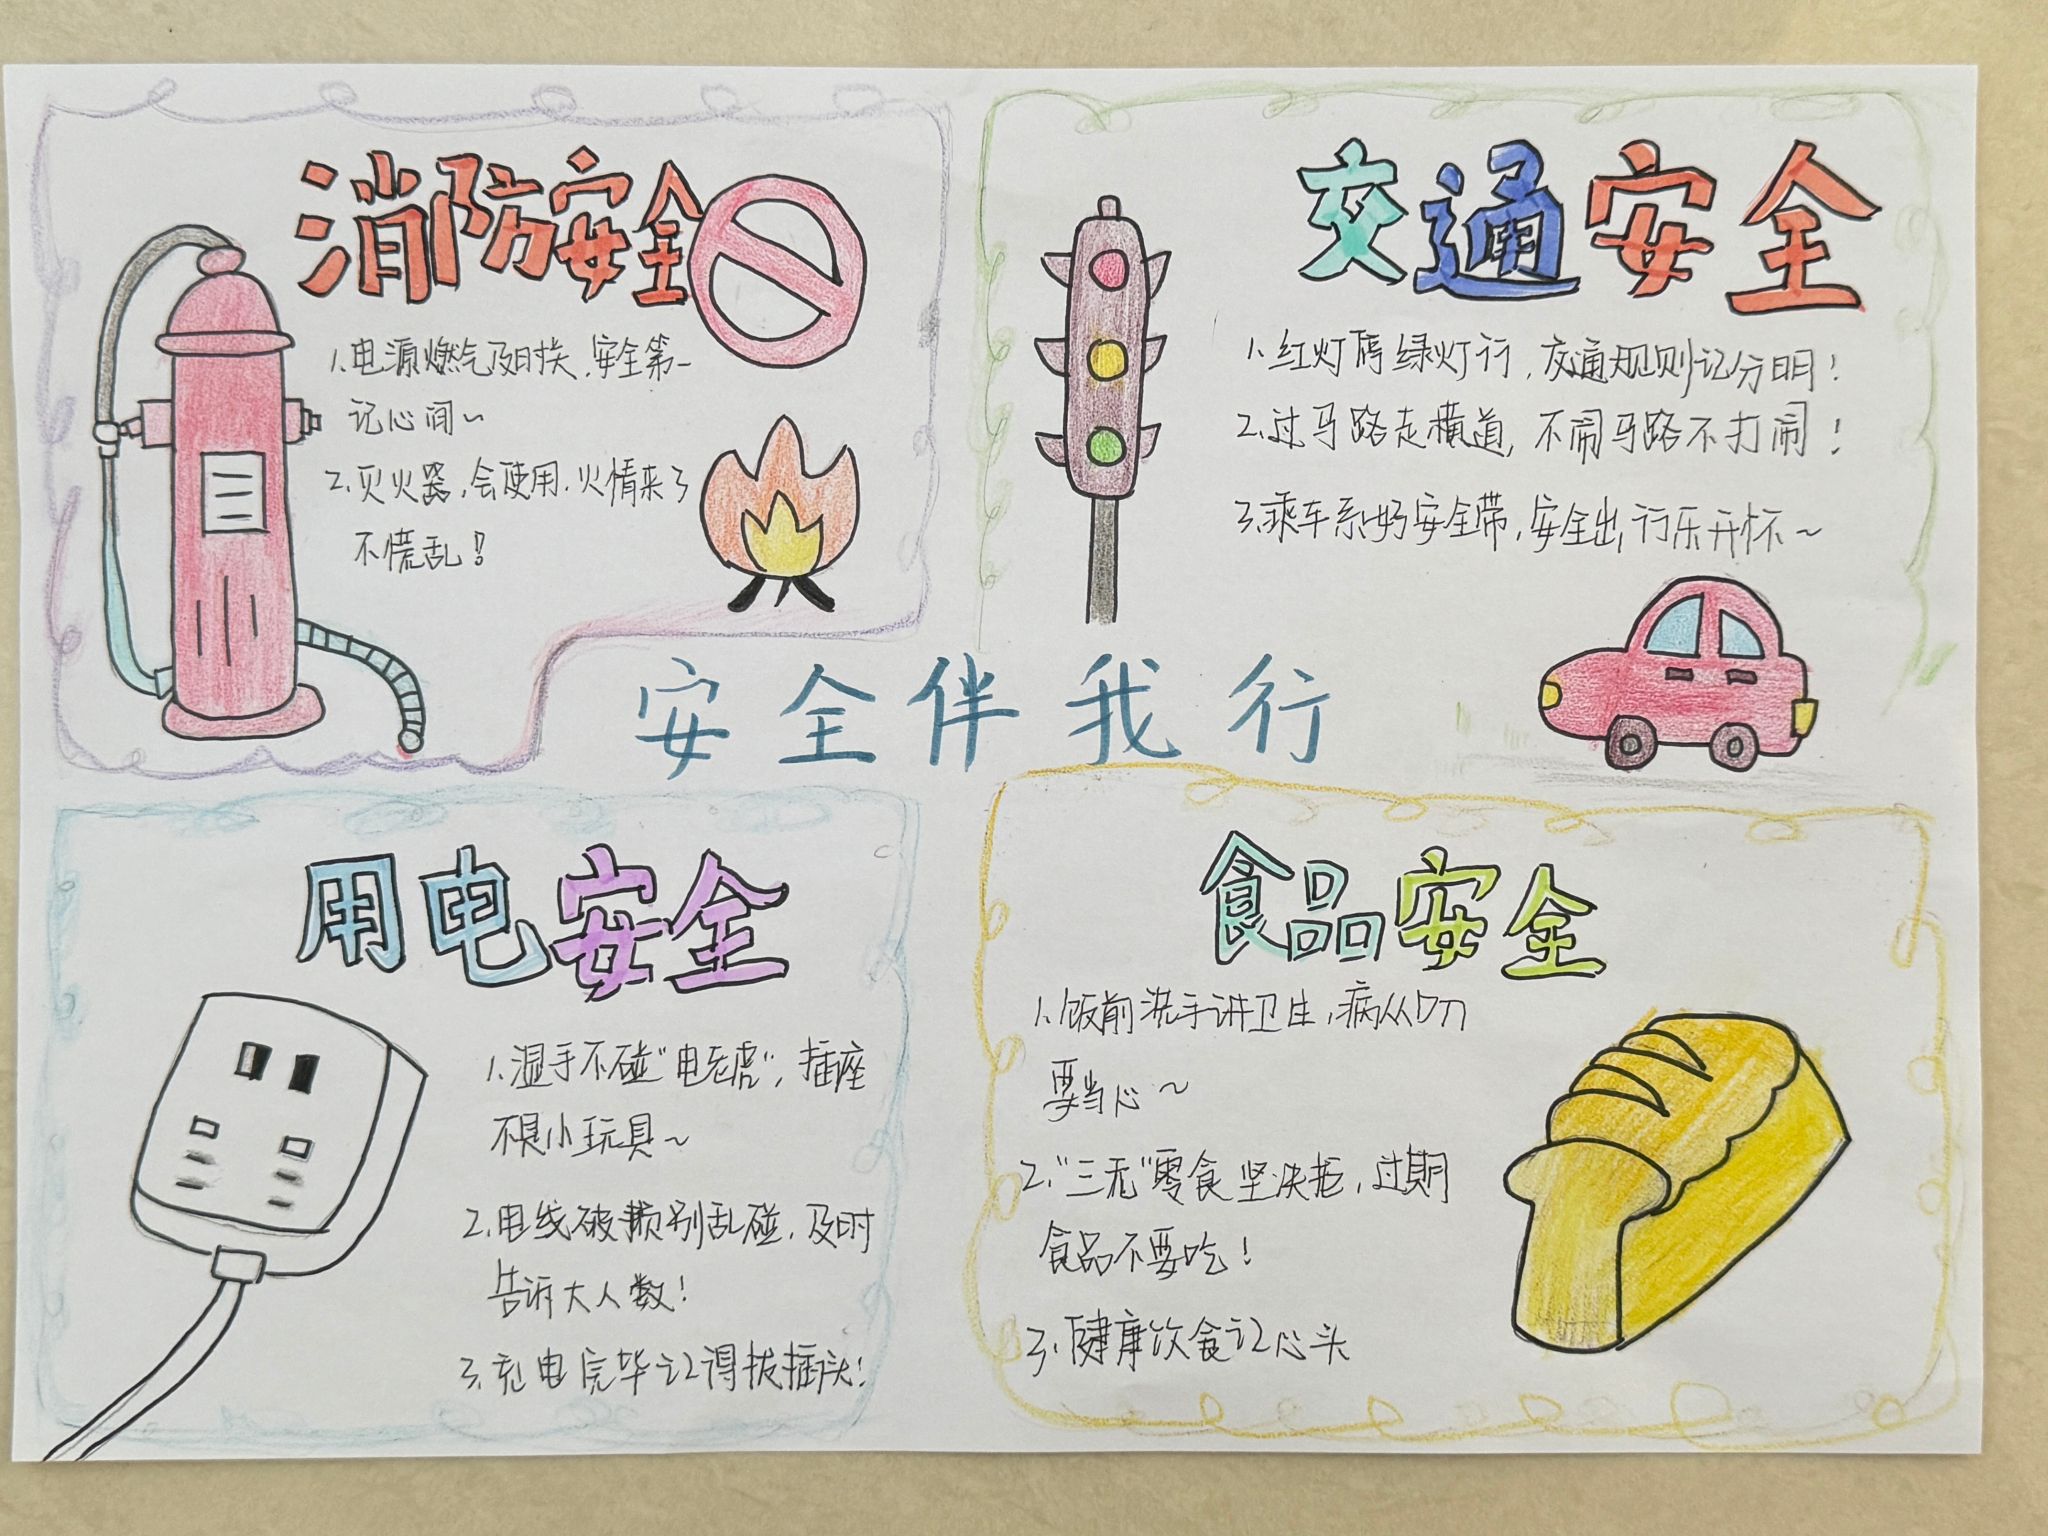 消防安全
1.电源燃气及时关,安全第一
记心间~
2.灭火器,会使用,火情来了
不慌乱!
交通安全
1.红灯停绿灯行,交通规则记分明!
2.过马路走横道,不闹马路不打闹!
3.乘车系好安全带,安全出行乐开怀~
安全伴我行
用电安全
1.湿手不碰“电老虎”,插座
不是小玩具~
2.电线破损别乱碰,及时
告诉大人数!
3.充电完毕记得拔插头!
食品安全
1.饭前洗手讲卫生,病从口入
要当心~
2.“三无”零食坚决拒,过期
食品不要吃!
3.健康饮食记心头